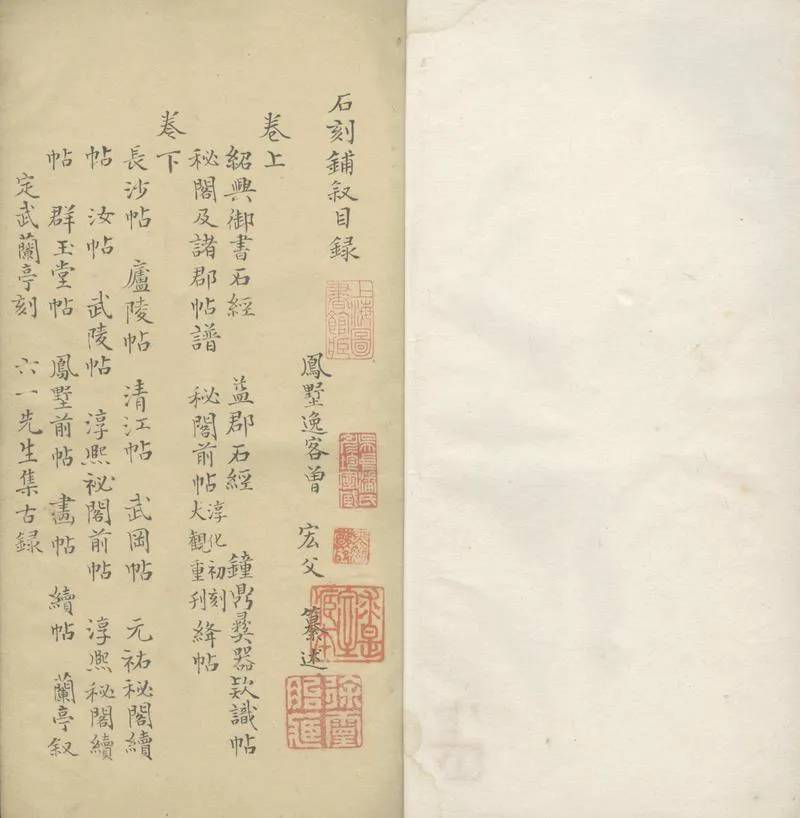 石刻鋪叙目録
鳳墅逸客曾 宏父 纂述
卷上
紹興御書石經 益郡石經 鐘鼎彝器款識帖
秘閣及諸郡帖譜 秘閣前帖 淳化初刻 大觀重刊 絳帖
卷下
長沙帖 廬陵帖 清江帖 武岡帖 元祐秘閣續
帖 汝帖 武陵帖 淳熙祕閣前帖 淳熙秘閣續
帖 群玉堂帖 鳳墅前帖 畫帖 續帖 蘭亭叙
定武蘭亭刻 六一先生集古録
上海圖書館藏